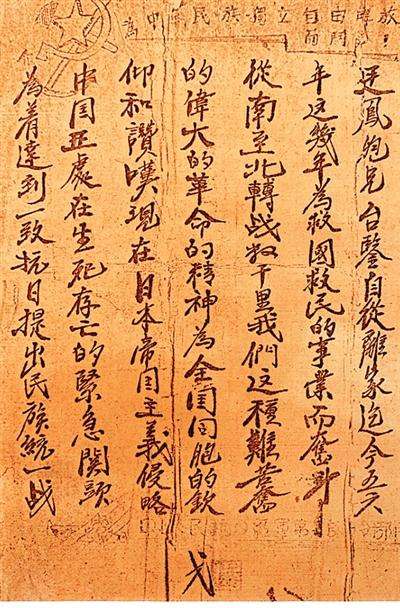 民族獨立自由
鳳胞兄台鑒自從離家迄今五六
年这幾年為救國救民的事業而奮鬥
從南至北轉战数千里我們这種艱奮
的偉大的革命的精神為全国同胞的欽
仰和讚嘆現在日本帝国主義侵略
中国正處在生死存亡的緊急関頭
為着達到一致抗日提出民族統一战
弋